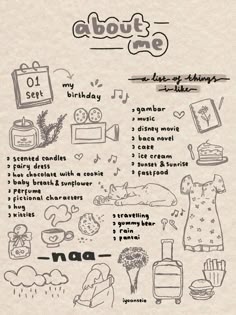 about
me
01
sept
my
birthday
a list of things
i like
gambar
music
disney movie
baca novel
cake
ice cream
sunset & sunrise
fastfood
scented candles
fairy dress
hot chocolate with a cookie
baby breath & sunflower
perfume
fictional characters
hug
kitties
travelling
gummy bear
rain
pantai
-naa-